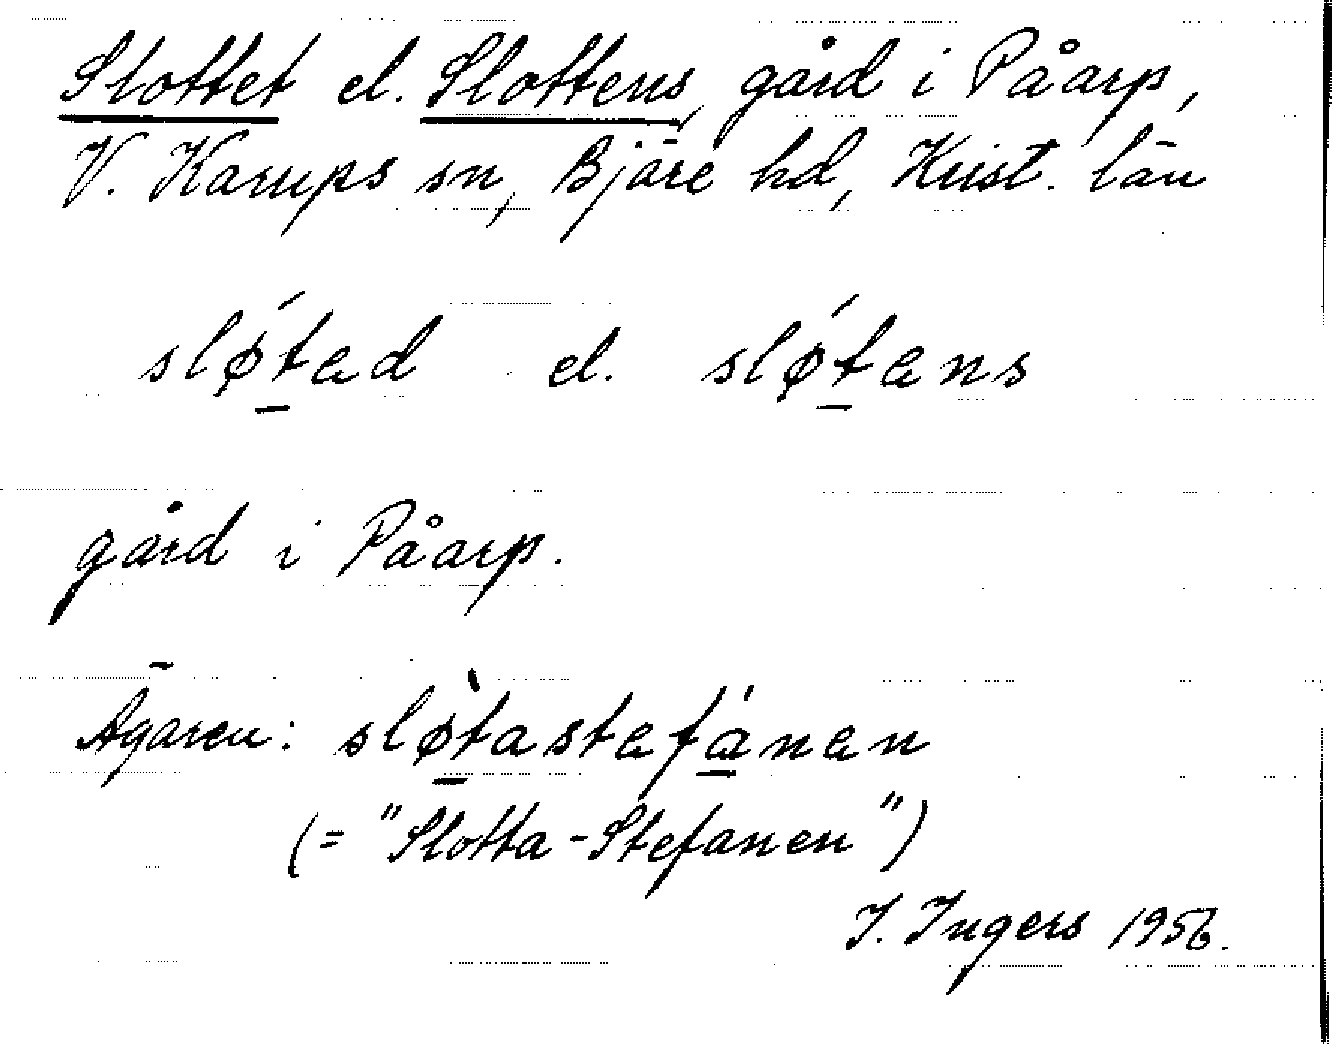 Slottet el. Slottens, gård i Påarp,
V. Karups sn, Bjäre hd, Krist. län
slǿtad el. slǿtans
gård i Påarp.
Ägaren: sløtastafánan
(= "Slotta-Stefanen")
I. Ingers 1956.